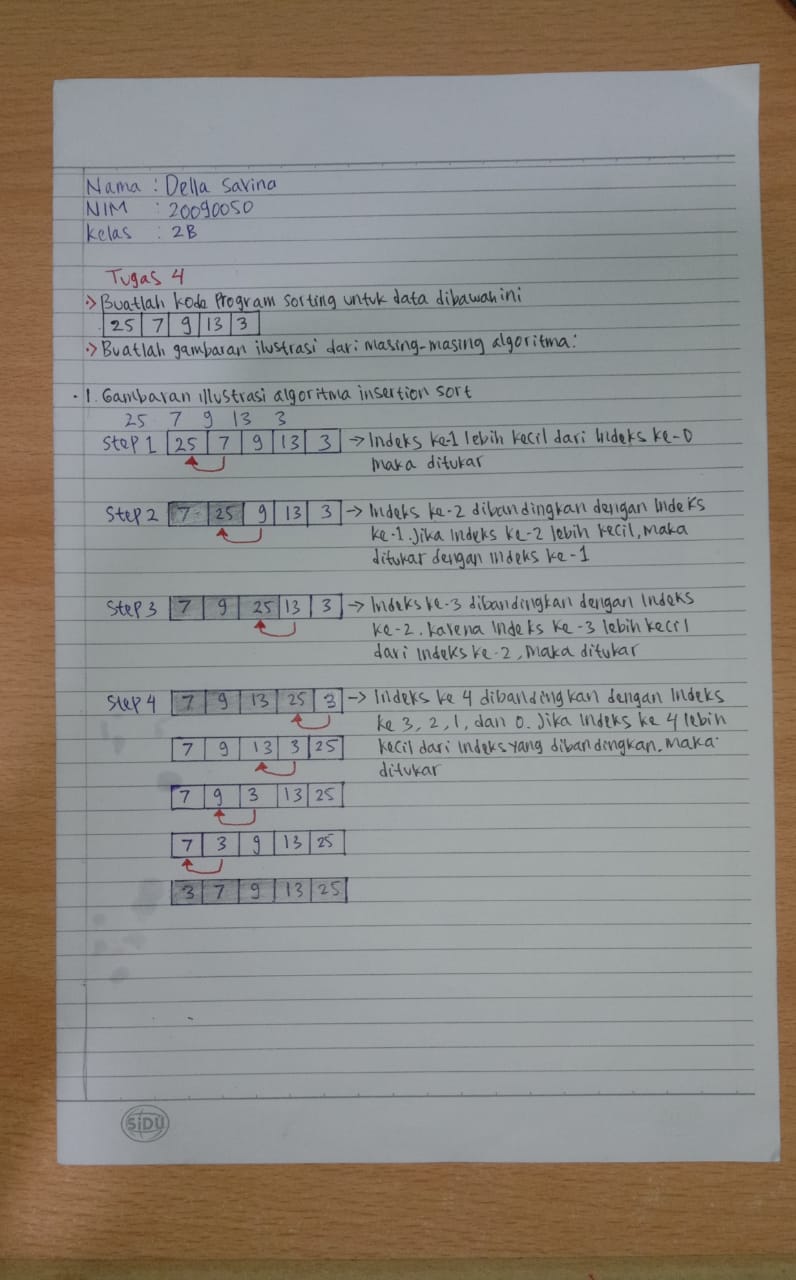 Nama : Della Savina
NIM : 20090050
Kelas : 2B
Tugas 4
-> Buatlah kode Program Sorting untuk data dibawah ini
25 7 9 13 3
-> Buatlah gambaran ilustrasi dari masing-masing algoritma:
1. Gambaran illustrasi algoritma insertion sort
25 7 9 13 3
Step 1 25 7 9 13 3 -> Indeks ke-1 lebih kecil dari Indeks ke-0
maka ditukar
Step 2 7 25 9 13 3 -> Indeks ke-2 dibandingkan dengan Indeks
ke-1. Jika Indeks ke-2 lebih kecil, maka
ditukar dengan indeks ke-1
Step 3 7 9 25 13 3 -> Indeks ke-3 dibandingkan dengan Indeks
ke-2. Karena Indeks ke-3 lebih kecil
dari Indeks ke-2, Maka ditukar
Step 4 7 9 13 25 3 -> Indeks ke 4 dibandingkan dengan Indeks
ke 3, 2, 1, dan 0. Jika Indeks ke 4 lebih
7 9 13 3 25 kecil dari Indeks yang dibandingkan, Maka
ditukar
7 9 3 13 25
7 3 9 13 25
3 7 9 13 25
SiDU